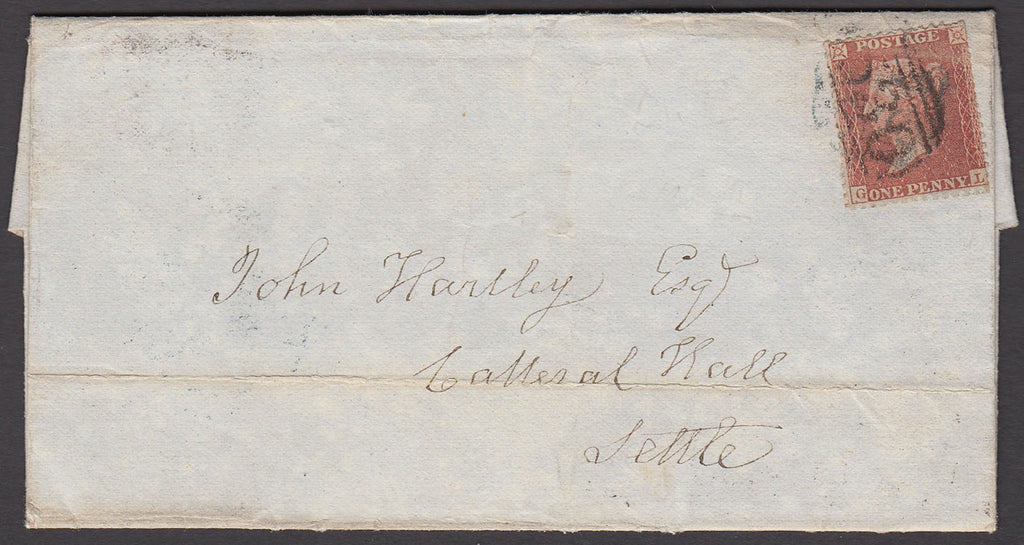 POSTAGE
G ONE PENNY L
John Hartley Esq
Catteral Hall
Settle